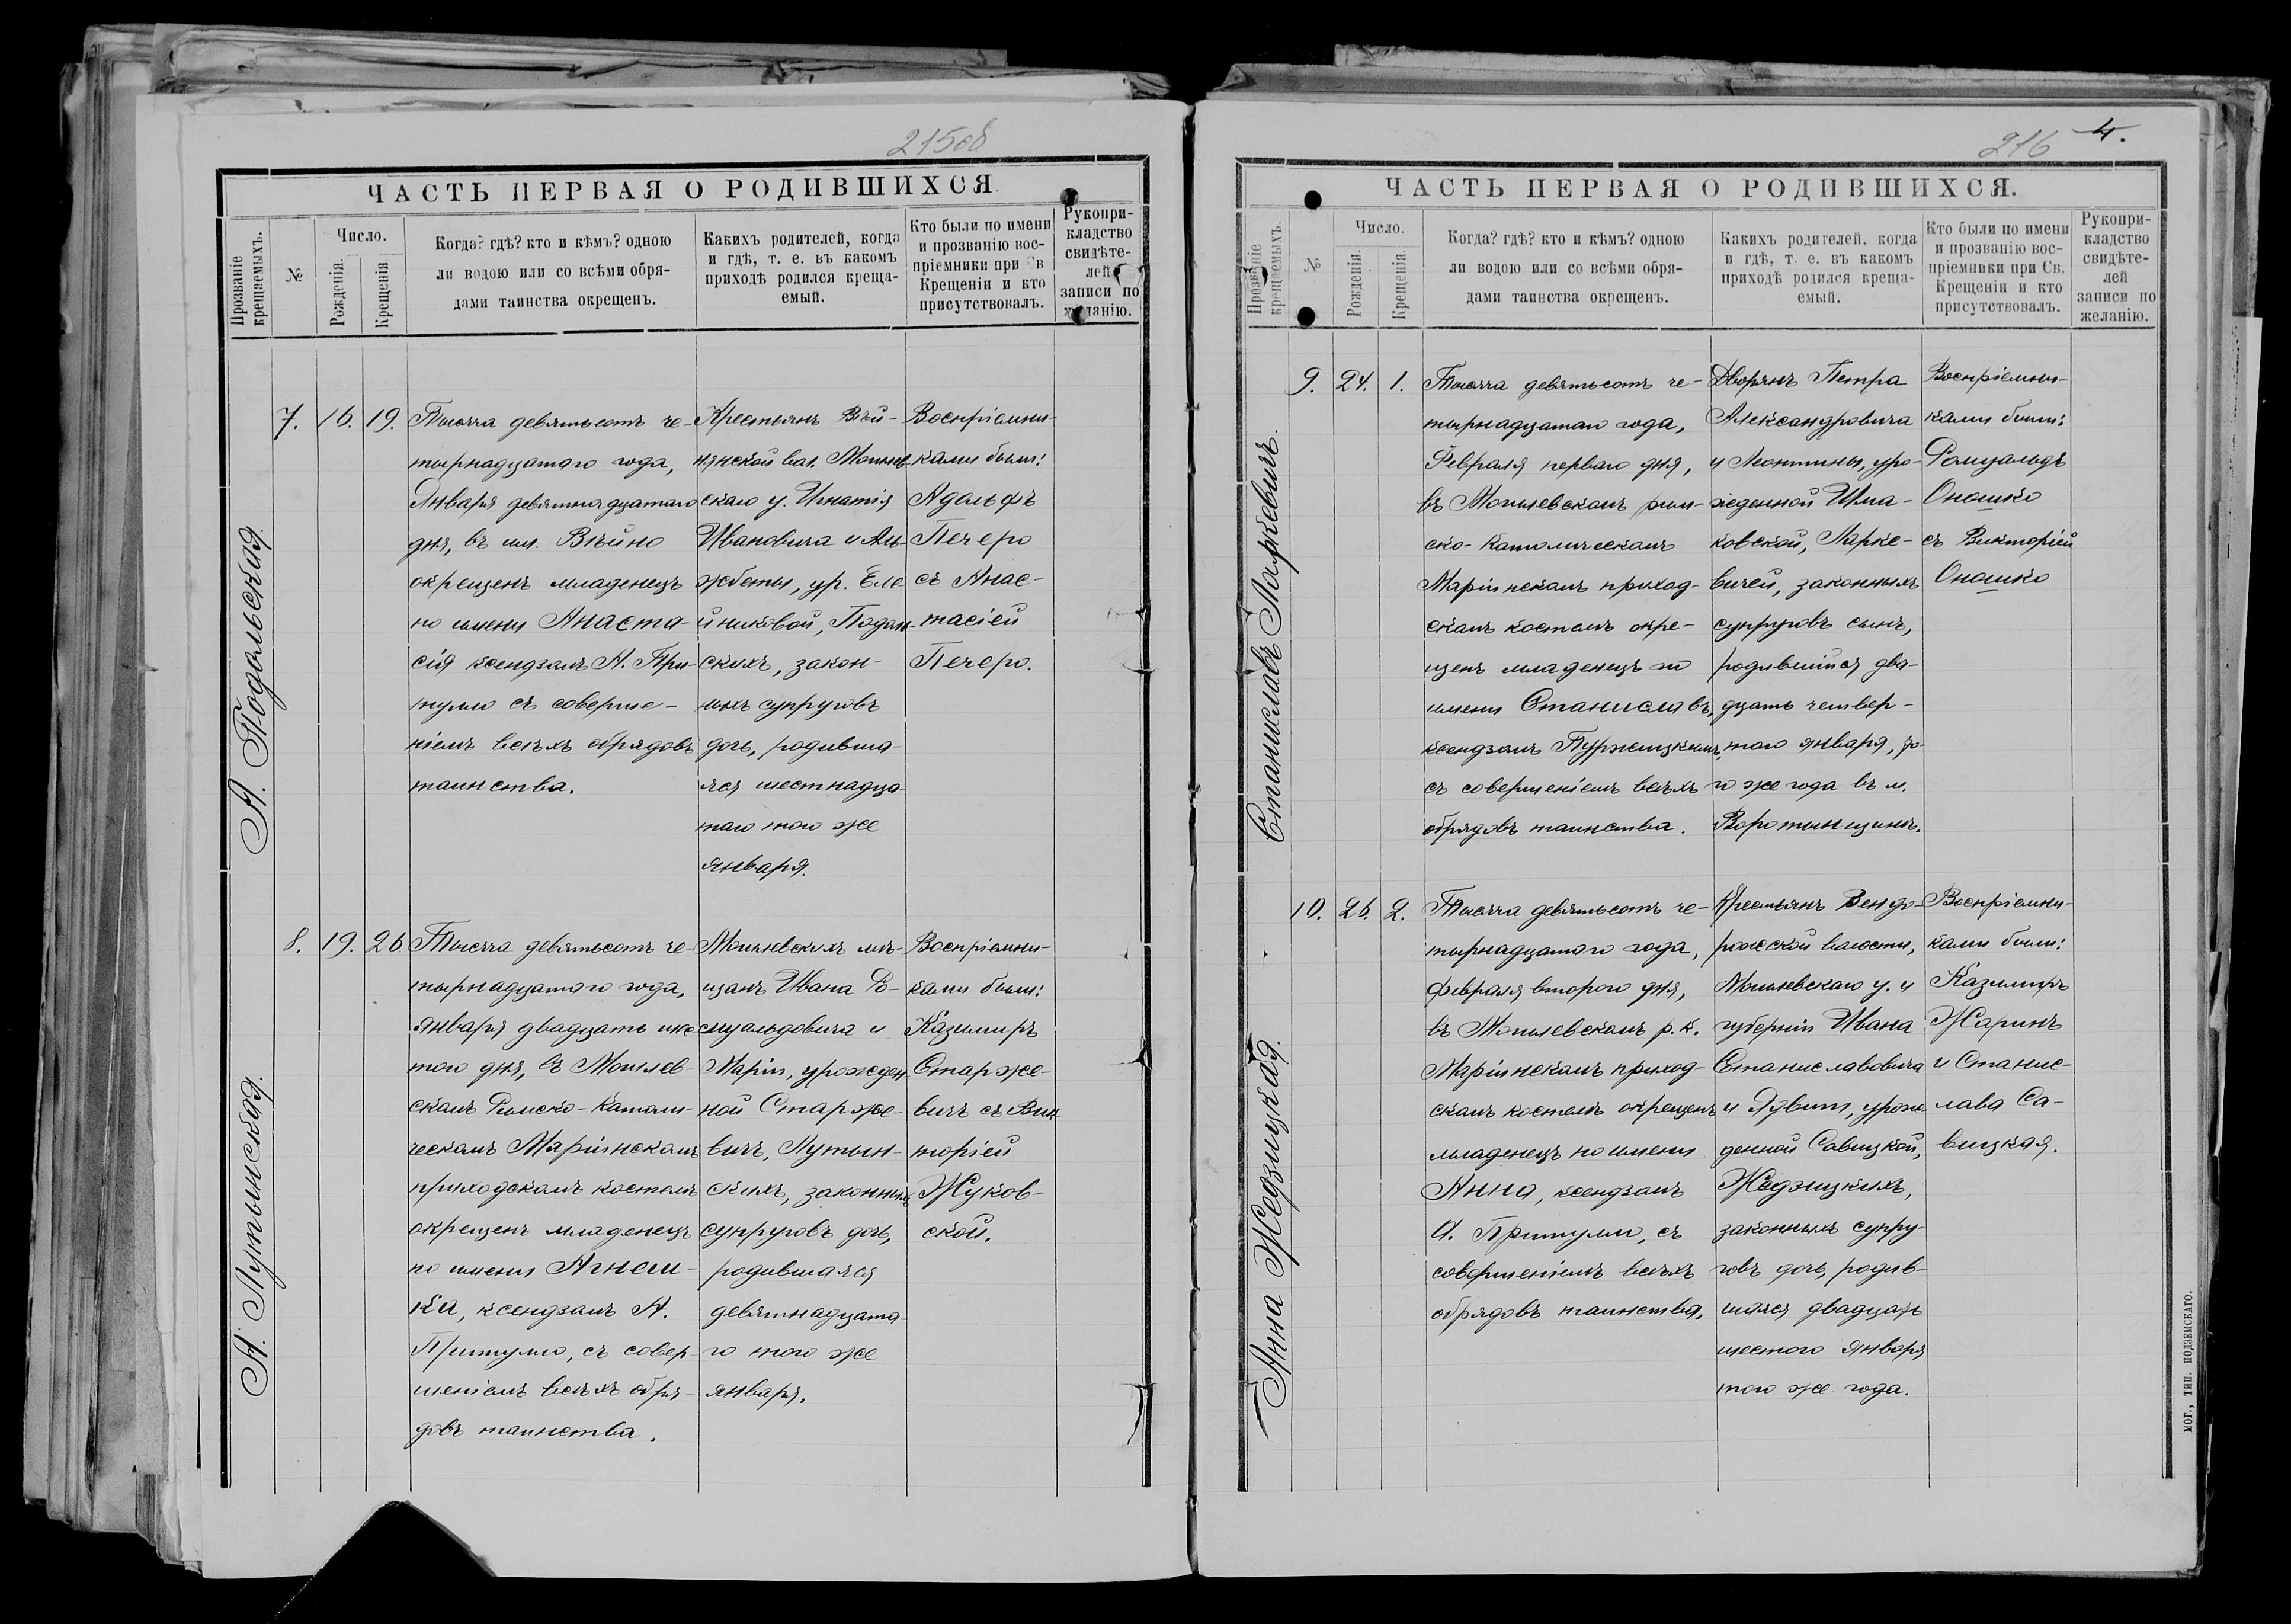 215об
ЧАСТЬ ПЕРВАЯ О РОДИВШИХСЯ.
Прозваніе крещаемыхъ.
№
Число.
Рожденія.
Крещенія
Когда? гдѣ? кто и кѣмъ? одною
ли водою или со всѣми обря-
дами таинства окрещенъ.
Какихъ родителей, когда
и гдѣ, т. е. въ какомъ
приходѣ родился креща-
емый.
Кто были по имени
и прозванію вос-
пріемники при Св
Крещеніи и кто
присутствовалъ.
Рукопри-
кладство
свидѣте-
лей
записи по
желанію.
А. Подольская.
7.
16.
19.
Тысяча девятьсотъ че-
тырнадцатаго года,
Января девятнадцатаго
дня, въ им. Вѣйно
окрещенъ младенецъ
по имени Анаста-
сія ксендзомъ А. При-
тулло съ соверше-
ніемъ всѣхъ обрядовъ
таинства.
Крестьянъ Вѣй-
нянской вол. Могилев
скаго у. Игнатія
Ивановича и Аль-
жбеты, ур. Еле
йниковой, Подоль
скихъ, закон-
ныхъ супруговъ
дочь, родивша-
яся шестнадца
таго того же
января.
Воспріемни-
ками были:
Адольфъ
Печеро
съ Анас-
тасіей
Печеро.
А. Лутынская.
8.
19.
26.
Тысяча девятьсотъ че-
тырнадцатаго года,
января двадцать шес
того дня, въ Могилев-
скомъ Римско-Католи-
ческомъ Маріинскомъ
приходскомъ костелѣ
окрещенъ младенецъ
по имени Агнеш-
ка, ксендзомъ А.
Притулло, съ совер-
шеніемъ всѣхъ обря-
довъ таинства.
Могилевскихъ мѣ-
щанъ Ивана Ро-
муальдовича и
Маріи, урожден-
ной Старже-
вичъ, Лутын-
скихъ, законныхъ
супруговъ дочь,
родившаяся
девятнадцата-
го того же
января.
Воспріемни-
ками были:
Казимиръ
Старже-
вичъ съ Вик
торіей
Жуков-
ской.
216
4.
ЧАСТЬ ПЕРВАЯ О РОДИВШИХСЯ.
Прозваніе крещаемыхъ.
№
Число.
Рожденія.
Крещенія.
Когда? гдѣ? кто и кѣмъ? одною
ли водою или со всѣми обря-
дами таинства окрещенъ.
Какихъ родителей, когда
и гдѣ, т. е. въ какомъ
приходѣ родился креща-
емый.
Кто были по имени
и прозванію вос-
пріемники при Св.
Крещеніи и кто
присутствовалъ.
Рукопри-
кладство
свидѣте-
лей
записи по
желанію.
Станиславъ Ларкевичъ.
9.
24.
1.
Тысяча девятьсотъ че-
тырнадцатаго года,
Февраля перваго дня,
въ Могилевскомъ рим-
ско-католическомъ
Маріинскомъ приход-
скомъ костелѣ окре-
щенъ младенецъ по
имени Станиславъ,
ксендзомъ Пуржицкимъ,
съ совершеніемъ всѣхъ
обрядовъ таинства.
Дворянъ Петра
Александровича
и Леонтины, уро-
жденной Шма-
ковской, Ларке-
вичей, законныхъ
супруговъ сынъ,
родившійся два-
дцать четвер-
таго января, то-
го же года въ м.
Воротынщинѣ.
Воспріемни-
ками были:
Ромуальдъ
Оношко
съ Викторіей
Оношко
Анна Жедзицкая.
10.
26.
2.
Тысяча девятьсотъ че-
тырнадцатаго года,
февраля второго дня,
въ Могилевскомъ р.к.
Маріинскомъ приход-
скомъ костелѣ окрещенъ
младенецъ по имени
Анна, ксендзомъ
А. Притулло, съ
совершеніемъ всѣхъ
обрядовъ таинства.
Крестьянъ Вендо-
рожской волости,
Могилевскаго у. и
губерніи Ивана
Станиславовича
и Ядвиги, урож
денной Савицкой,
Жедзицкихъ,
законныхъ супру-
говъ дочь, родив-
шаяся двадцать
шестого января
того же года.
Воспріемни-
ками были:
Казимиръ
Жаринъ
и Станис-
лава Са-
вицкая.
МОГ., ТИП. ПОДЗЕМСКАГО.